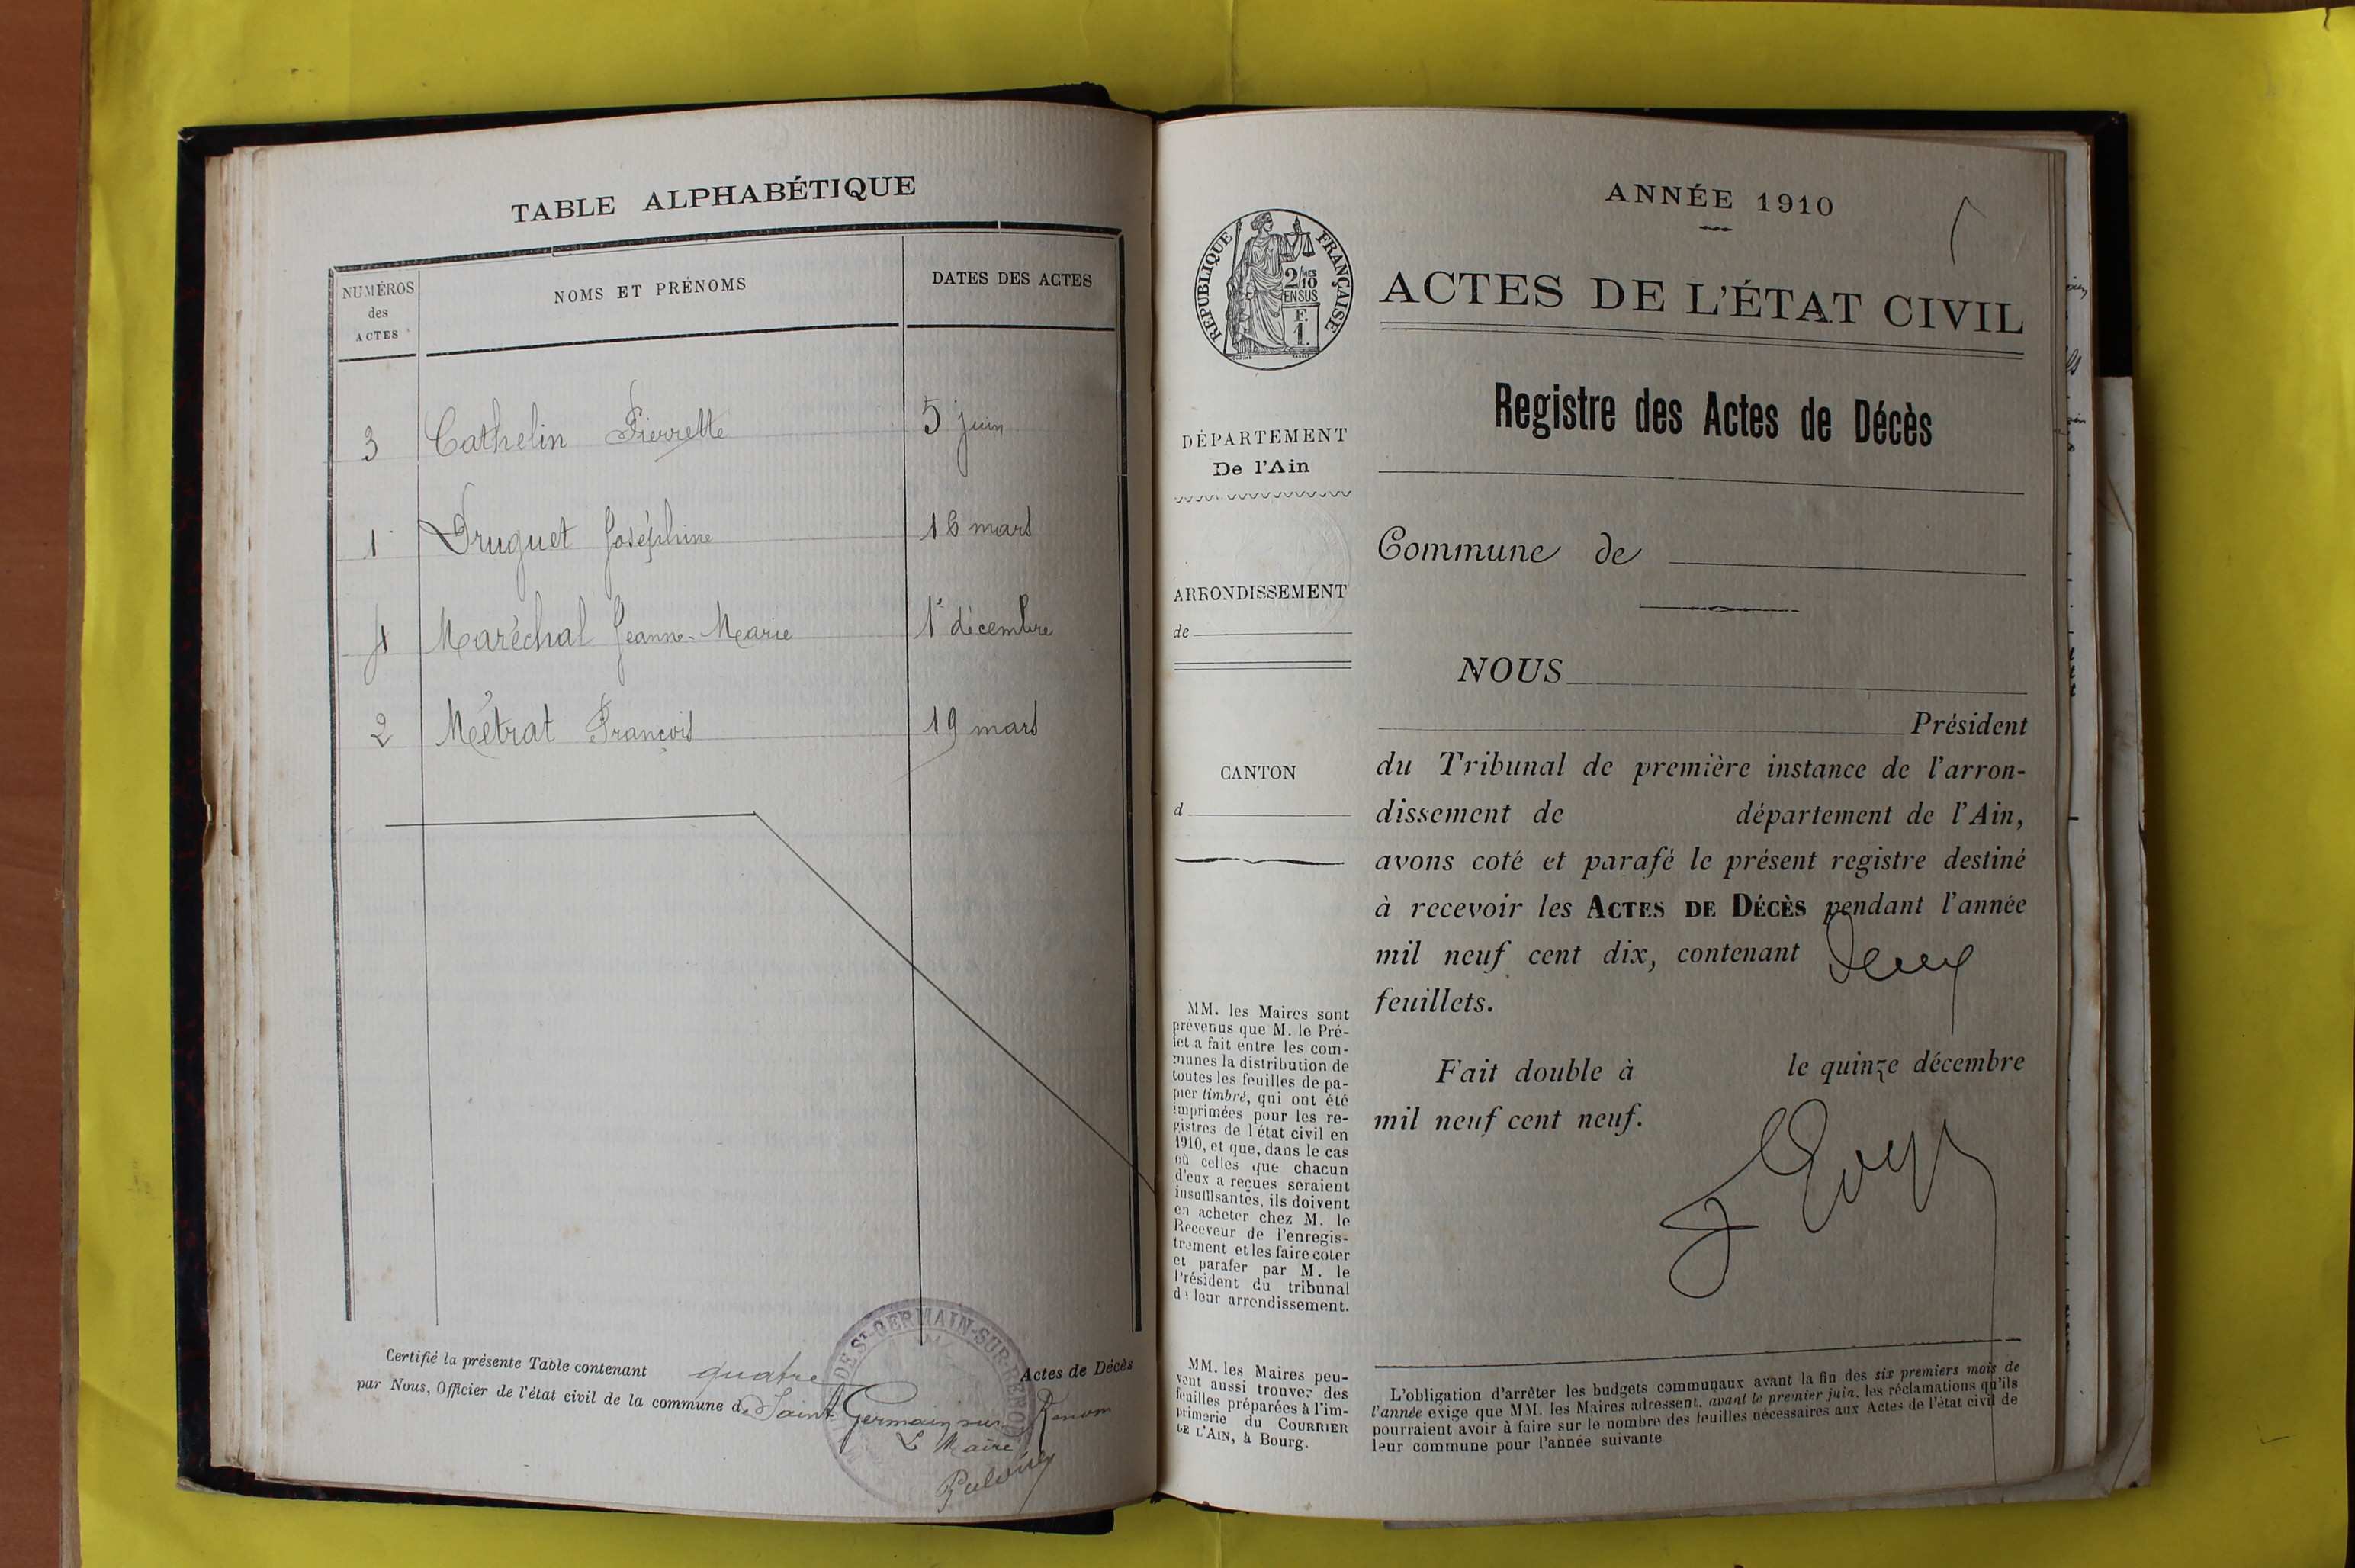 TABLE ALPHABÉTIQUE
NUMÉROS
des
ACTES
NOMS ET PRÉNOMS
DATES DES ACTES
3 Cathelin Pierrette 5 juin
1 Druguet Joséphine 16 mars
4 Maréchal Jeanne-Marie 1er décembre
2 Métrat François 19 mars
Certifié la présente Table contenant quatre Actes de Décès
par Nous, Officier de l'état civil de la commune de Saint Germain sur Renom
Le Maire
DE ST-GERMAIN-SUR-RENON
ANNÉE 1910
RÉPUBLIQUE FRANÇAISE
2/10MES
EN SUS
F.
1.
ACTES DE L'ÉTAT CIVIL
Registre des Actes de Décès
DÉPARTEMENT
De l'Ain
ARRONDISSEMENT
de
CANTON
d
Commune de
NOUS
Président
du Tribunal de première instance de l'arron-
dissement de département de l'Ain,
avons coté et parafé le présent registre destiné
à recevoir les ACTES DE DÉCÈS pendant l'année
mil neuf cent dix, contenant deux
feuillets.
Fait double à le quinze décembre
mil neuf cent neuf.
MM. les Maires sont
prévenus que M. le Pré-
fet a fait entre les com-
munes la distribution de
toutes les feuilles de pa-
pier timbré, qui ont été
imprimées pour les re-
gistres de l'état civil en
1910, et que, dans le cas
où celles que chacun
d'eux a reçues seraient
insuffisantes, ils doivent
en acheter chez M. le
Receveur de l'enregis-
trement et les faire coter
et parafer par M. le
Président du tribunal
de leur arrondissement.
MM. les Maires peu-
vent aussi trouver des
feuilles préparées à l'im-
primerie du COURRIER
DE L'AIN, à Bourg.
L'obligation d'arrêter les budgets communaux avant la fin des six premiers mois de
l'année exige que MM. les Maires adressent, avant le premier juin, les réclamations qu'ils
pourraient avoir à faire sur le nombre des feuilles nécessaires aux Actes de l'état civil de
leur commune pour l'année suivante